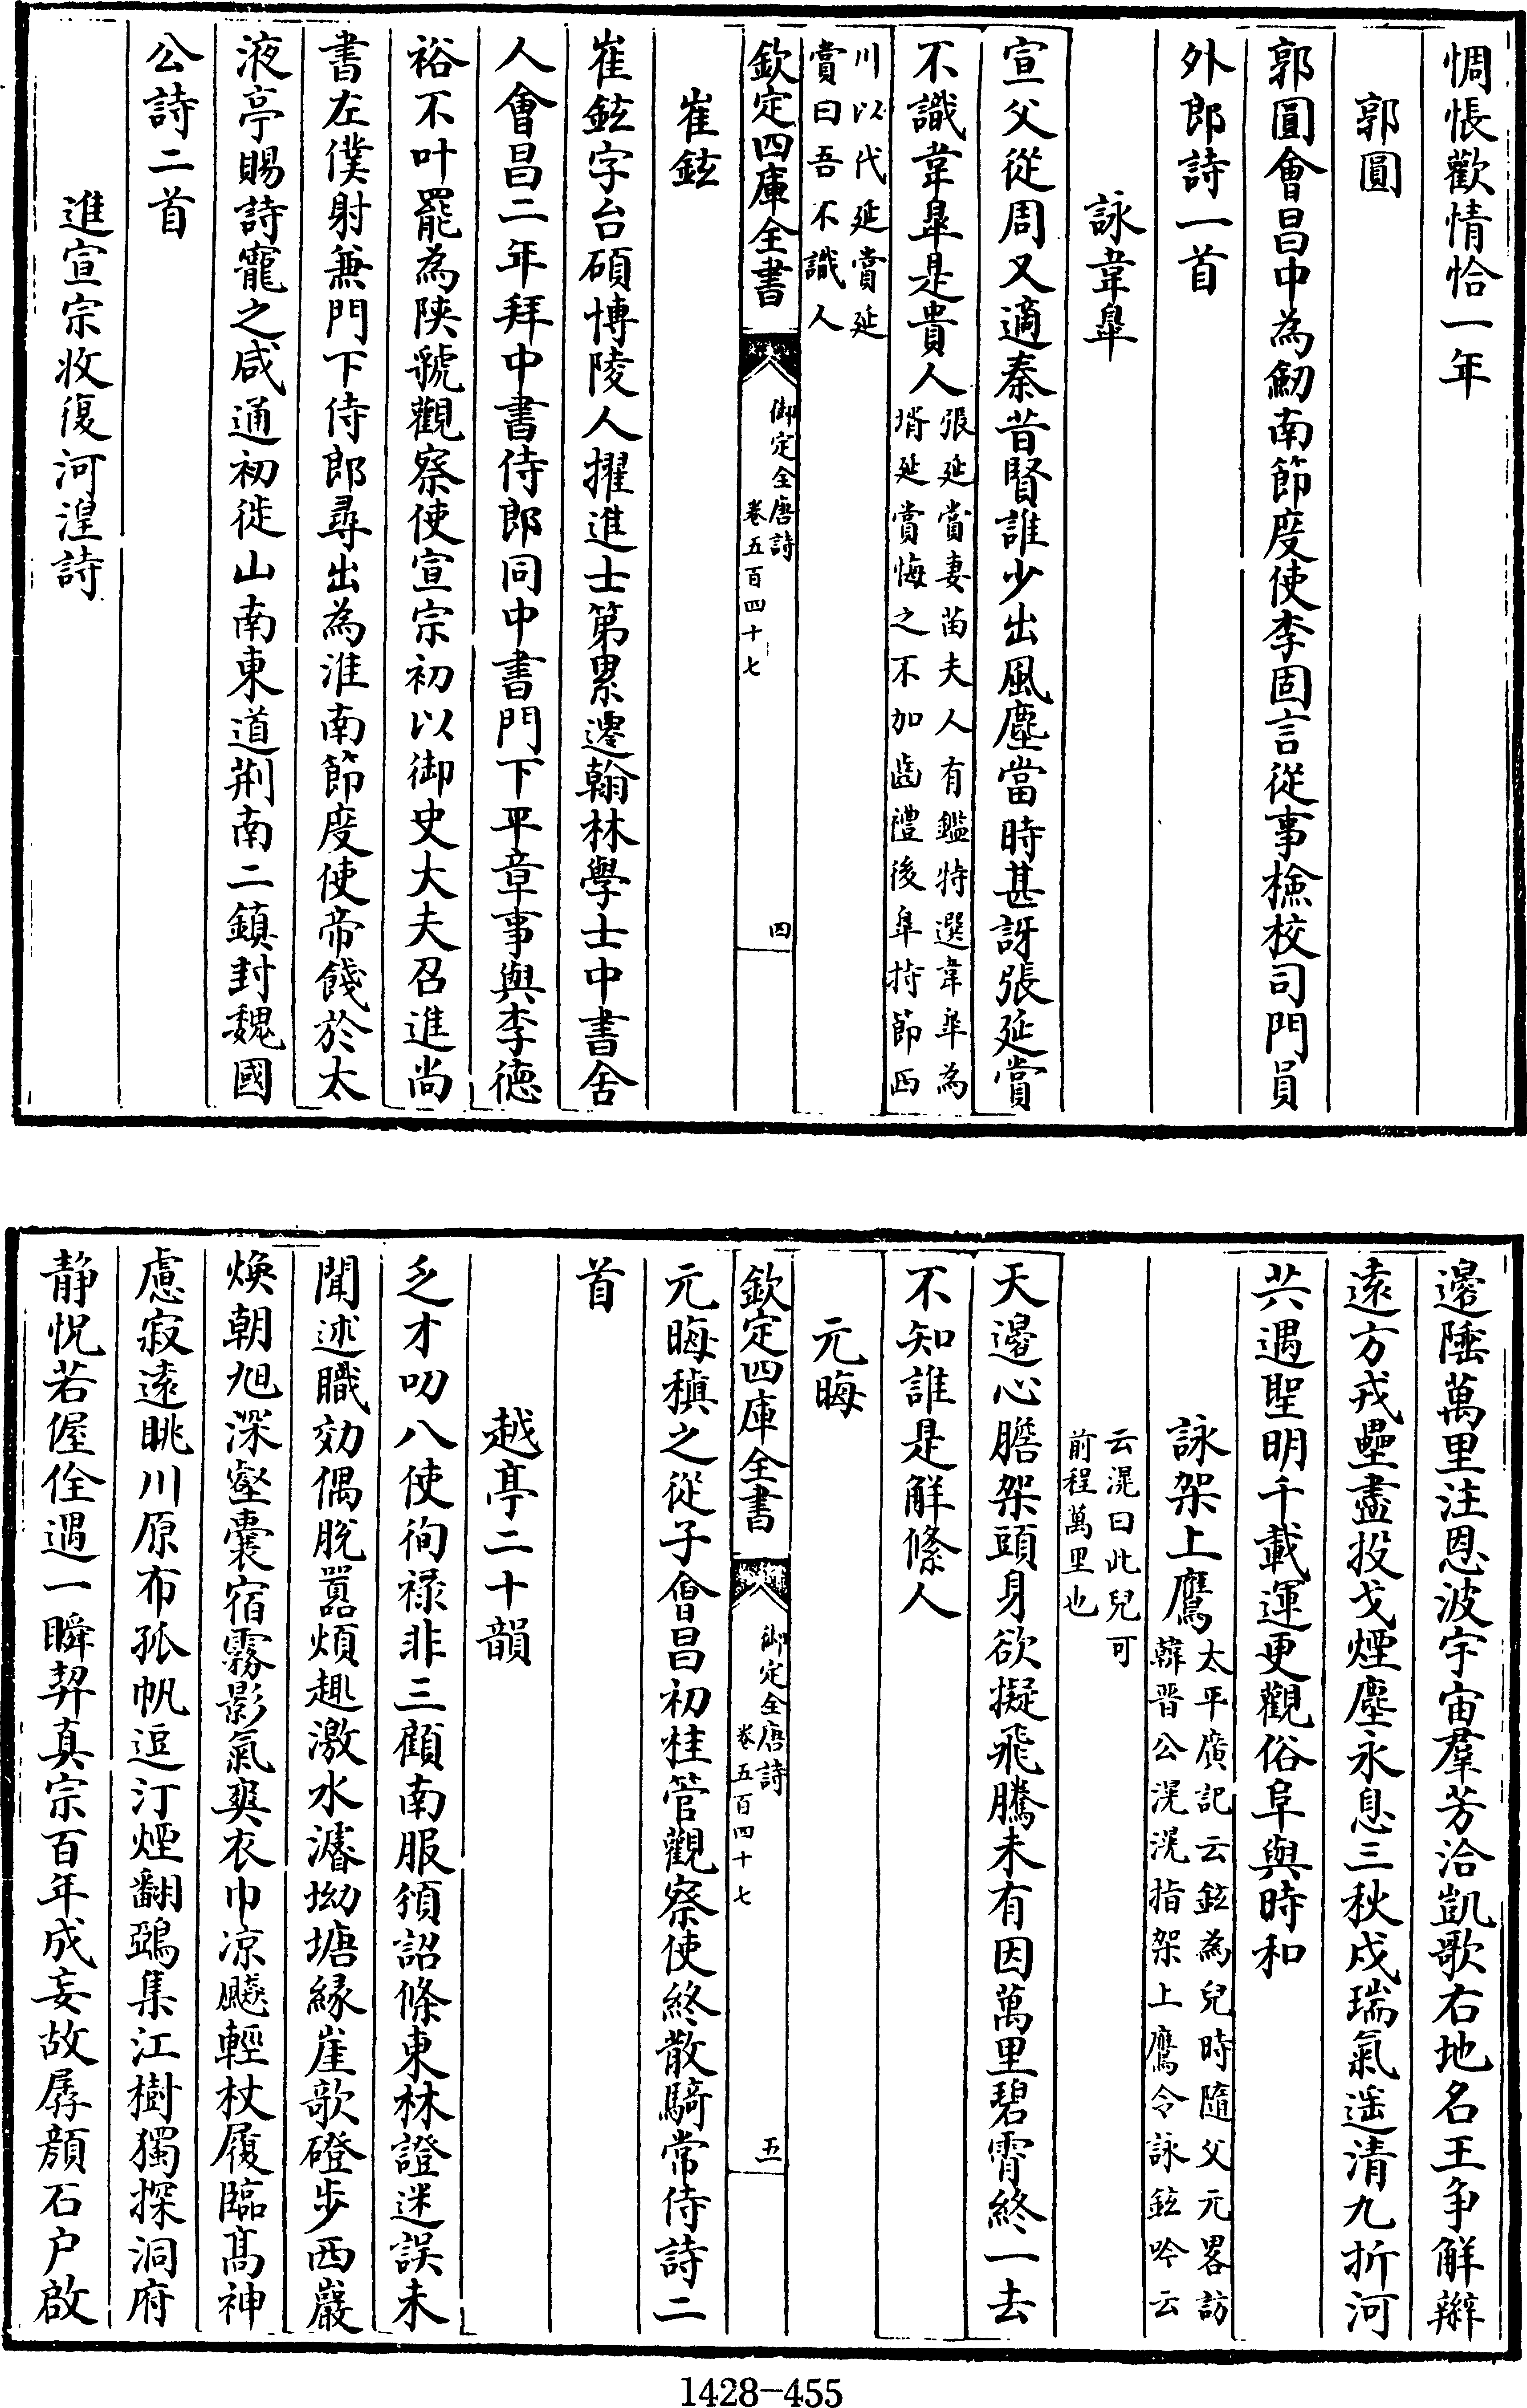 惆悵歡情恰一年
郭圓
郭圓會昌中為劒南節度使李固言從事檢校司門員
外郎詩一首
詠韋臯
宣父從周又適秦昔賢誰少出風塵當時甚訝張延賞
不識韋臯是貴人張延賞妻苗夫人有鑑特選韋臯為
壻延賞悔之不加齒禮後臯持節西
川以代延賞延
賞曰吾不識人
欽定四庫全書
御定全唐詩
卷五百四十七
四
崔鉉
崔鉉字台碩博陵人擢進士第累遷翰林學士中書舍
人會昌二年拜中書侍郎同中書門下平章事與李德
裕不叶罷為陝虢觀察使宣宗初以御史大夫召進尚
書左僕射兼門下侍郎尋出為淮南節度使帝餞於太
液亭賜詩寵之咸通初徙山南東道荆南二鎮封魏國
公詩二首
進宣宗收復河湟詩
邊陲萬里注恩波宇宙羣芳洽凱歌右地名王争解辮
遠方戎壘盡投戈煙塵永息三秋戍瑞氣遥清九折河
共遇聖明千載運更觀俗阜與時和
詠架上鷹太平廣記云鉉為兒時隨父元畧訪
韓晋公滉滉指架上鷹令詠鉉吟云
云滉曰此兒可
前程萬里也
天邊心膽架頭身欲擬飛騰未有因萬里碧霄終一去
不知誰是解絛人
元晦
欽定四庫全書
御定全唐詩
卷五百四十七
五
元晦稹之從子會昌初桂管觀察使終散騎常侍詩二
首
越亭二十韻
乏才叨八使徇禄非三顧南服頒詔條東林證迷誤未
聞述職効偶脱嚚煩趣激水濬坳塘緣崖欹磴步西巖
煥朝旭深壑囊宿霧影氣爽衣巾凉飈輕杖履臨髙神
慮寂遠眺川原布孤帆逗汀煙翻鵶集江樹獨探洞府
静怳若偓佺遇一瞬契真宗百年成妄故孱顔石户啟
1428-455